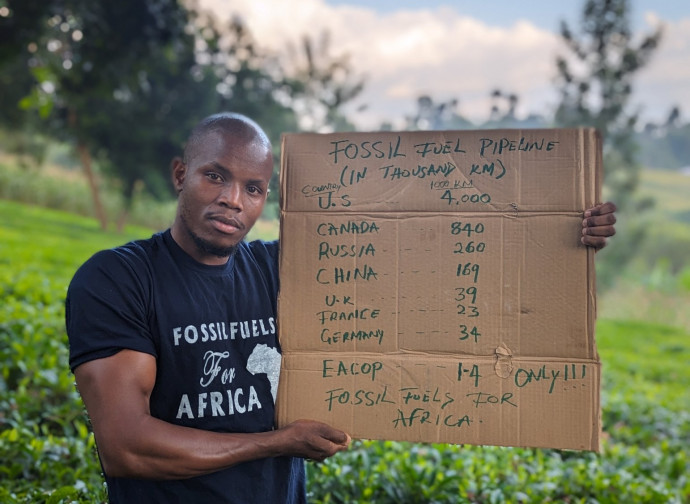 FOSSIL FUEL PIPELINE
(IN THOUSAND KM)
COUNTRY 1000 KM
U.S 4,000
CANADA 840
RUSSIA 260
CHINA 169
U.K 39
FRANCE 23
GERMANY 34
EACOP 1.4 ONLY!!!
FOSSIL FUELS FOR
AFRICA.
FOSSIL FUELS
For
AFRICA